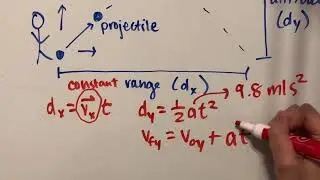 projectile
(dy)
constant range (dx)
9.8 m/s²
dx = v⃗x t
dy = ½at²
vfy = voy + at